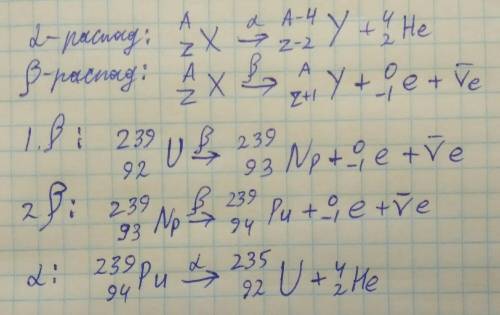 α-распад: ᴬ_Z X →^α ᴬ⁻⁴_Z-2 Y + ⁴₂He
β-распад: ᴬ_Z X →^β ᴬ_Z+1 Y + ⁰₋₁e + ν̄e
1.β: ²³⁹₉₂U →^β ²³⁹₉₃Np + ⁰₋₁e + ν̄e
2β: ²³⁹₉₃Np →^β ²³⁹₉₄Pu + ⁰₋₁e + ν̄e
α: ²³⁹₉₄Pu →^α ²³⁵₉₂U + ⁴₂He